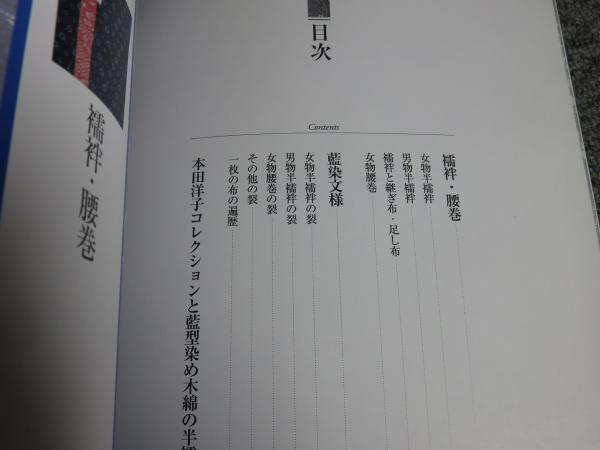 目次
Contents
襦袢・腰巻
女物半襦袢
男物半襦袢
襦袢と継ぎ布・足し布
女物腰巻
藍染文様
女物半襦袢の裂
男物半襦袢の裂
女物腰巻の裂
その他の裂
一枚の布の遍歴
本田洋子コレクションと藍型染め木綿の半
襦袢・腰巻